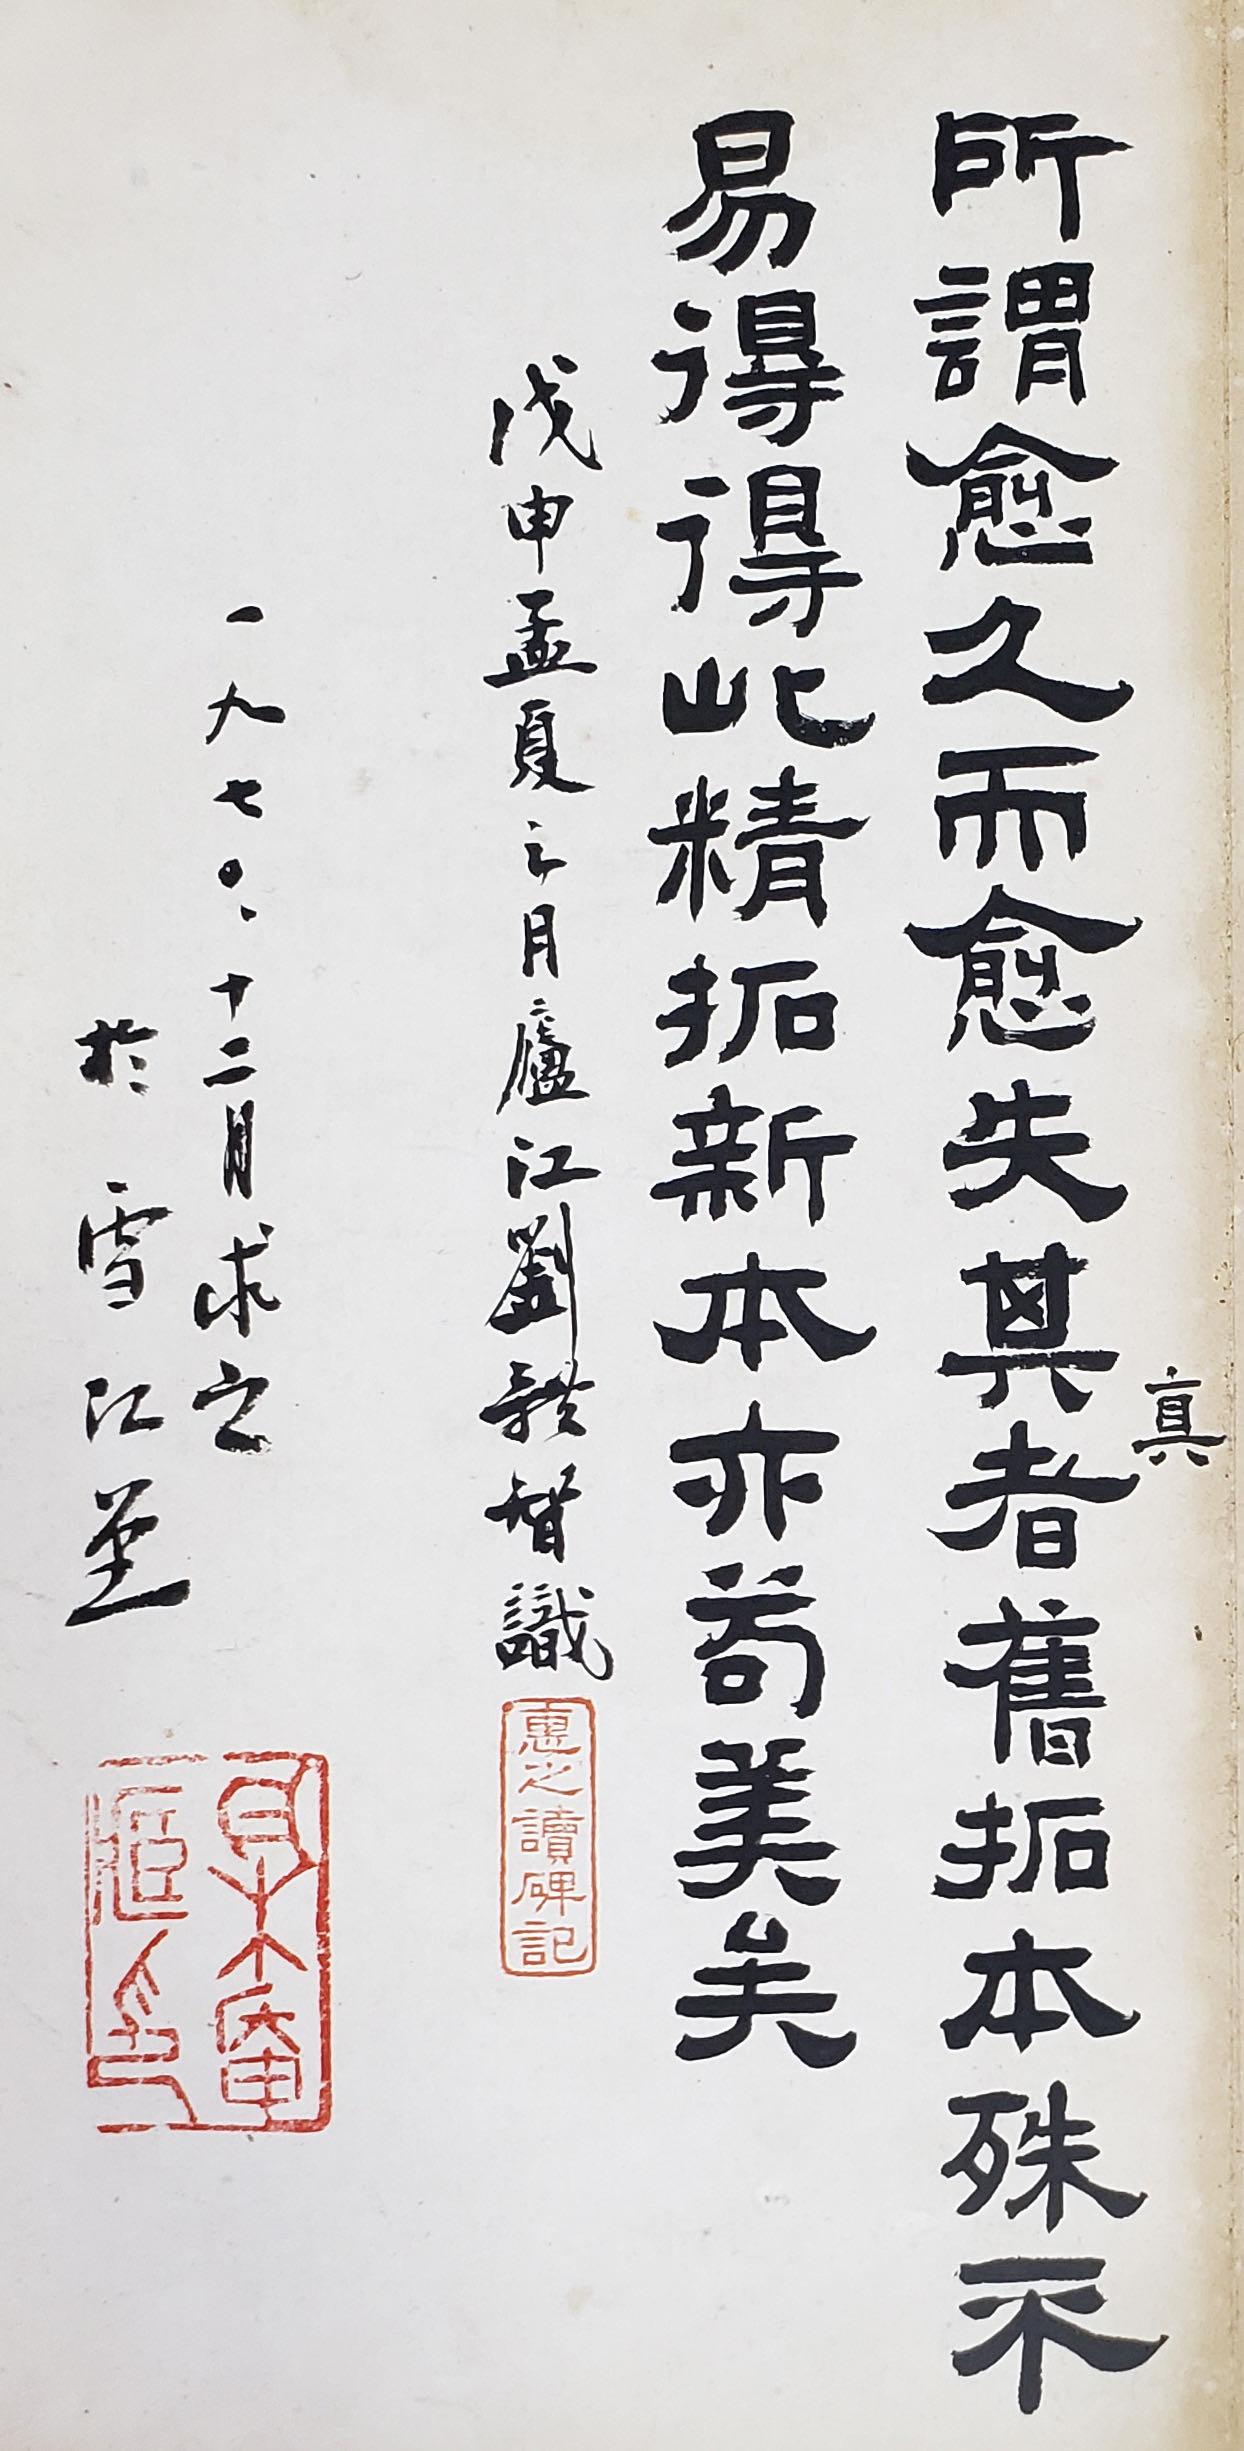 所謂愈久而愈失其者舊拓本殊不
真
易得得此精拓新本亦苟美矣
戊申孟夏之月廬江劉體智識
惠之讀碑記
一九七〇、十二月求之
於雪江堂